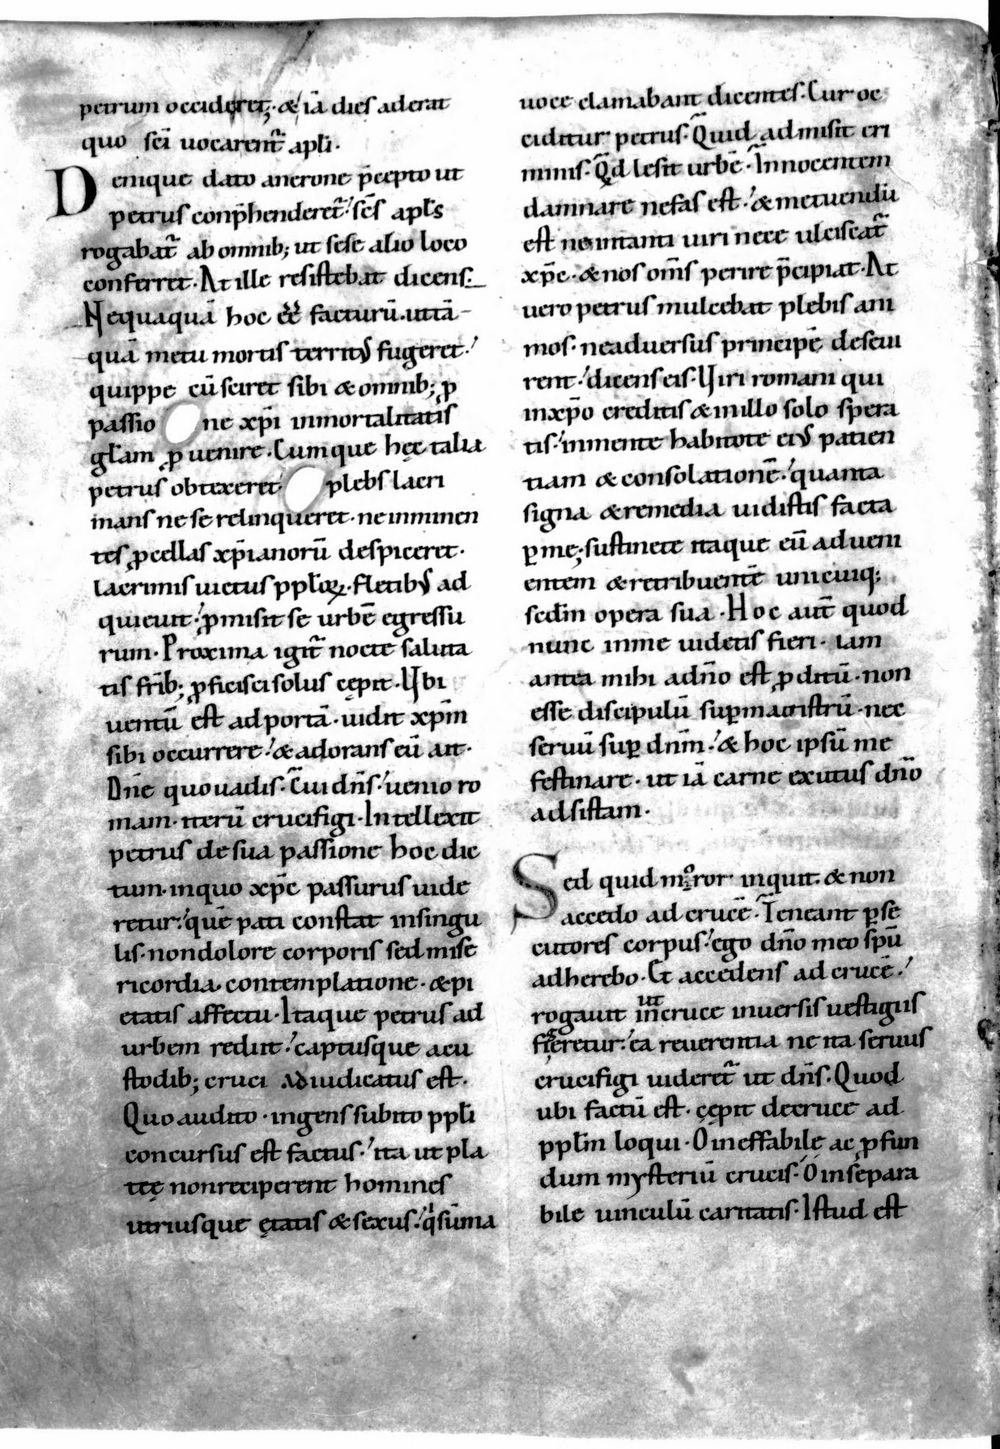 petrum occideret; & iā dies aderat
quo sc̄i uocarent᷑ apl̄i·
Denique dato anerone p̄cepto ut
petrus conp̄henderet᷑·' sc̄s apl̄s
rogabat᷑ ab omnib; ut sese alio loco
conferret· At ille resistebat dicens·
Nequaquā hoc eē facturū· ut tā-
quā metu mortis territꝰ fugeret·'
quippe cū sciret sibi & omnib; ꝓ
passio ne xp̄i inmortalitatis
gl̄am ꝓuenire· Cumque hęc talia
petrus obtexeret plebs lacri
mans ne se relinqueret· ne inminen
tes ꝓcellas xp̄ianorū despiceret·
Lacrimis uictus ppl̄oꝝ· fletibꝰ ad
quieuit·' ꝓmisit se urbē egressu
rum· Proxima igit᷑ nocte saluta
tis fr̄ib; ꝓficisci solus cępit· Ubi
uentū est ad portā· uidit xp̄m
sibi occurrere·' & adorans eū ait·
Dn̄e quo uadis· Cui dn̄s·' uenio ro
mam· iterū crucifigi· Intellexit
petrus de sua passione hoc dic
tum· inquo xp̄c passurus uide
retur·' quē pati constat insingu
lis· nondolore corporis sed mise
ricordia contemplatione· & pi
etatis affectu· Itaque petrus ad
urbem rediit·' captusque acu
stodib; cruci adiudicatus est·
Quo audito· ingens subito ppl̄i
concursus est factus·' ita ut pla
teę nonreciperent homines
utriusque ętatis & sexus·' qͥ sūma
uoce clamabant dicentes· Cur oc
ciditur petrus· Quid admisit cri
minis· Qd lesit urbē· Innocentem
damnare nefas est·' & metuendū
est ne intanti uiri nece ulciscat᷑
xp̄c· & nos om̄s perire p̄cipiat· At
uero petrus mulcebat plebis ani
mos· ne aduersus principē desęui
rent·' dicens eis· Uiri romani qui
inxp̄o creditis & inillo solo spera
tis·' inmente habitote eiꝰ patien
tiam & consolationē·' quanta
signa & remedia uidistis facta
ꝑ me; sustinete itaque eū adueni
entem & retribuentē unicuiq;
sedm̄ opera sua· Hoc aut̄ quod
nunc inme uidetis fieri· iam
antea mihi adn̄o est ꝓditū· non
esse discipulū suꝑ magistrū· nec
seruū suꝑ dn̄m·' & hoc ipsū me
festinare· ut iā carne exutus dn̄o
adsistam·
Sed quid moror inquit· & non
accedo ad crucē· Teneant ꝑse
cutores corpus·' ego dn̄o meo sp̄ū
adherebo· Et accedens ad crucē·'
rogauit ut incruce inuersis uestigiis
figeretur·' ea reuerentia ne ita seruus
crucifigi uideret᷑ ut dn̄s· Quod
ubi factū est· cępit decruce ad
ppl̄m loqui· O ineffabile ac ꝓfun
dum mysteriū crucis· O insepara
bile uinculū caritatis· Istud est